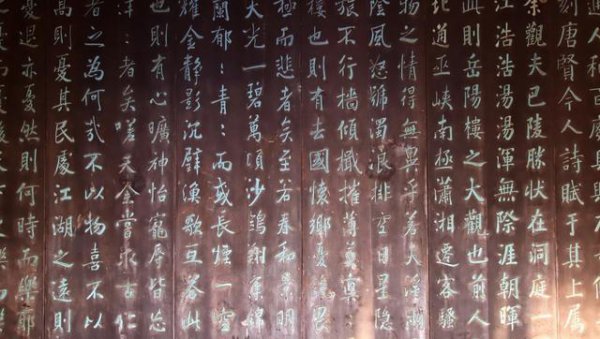 人和百廢具興乃
刻唐賢今人詩賦于其上屬
予觀夫巴陵勝狀在洞庭一
江浩浩湯湯渾無際涯朝暉
此則岳陽樓之大觀也前人
北通巫峽南極瀟湘遷客騷
物之情得無異乎若夫淫雨
陰風怒號濁浪排空日星隱
旅不行檣傾檝摧薄暮冥〻
樓也則有去國懷鄉憂讒畏
極而悲者矣至若春和景明
天光一碧萬頃沙鷗翔集錦
蘭郁〻青〻而或長煙一空
耀金靜影沉璧漁歌互答此
也則有心曠神怡寵辱皆忘
洋〻者矣嗟夫予嘗求古仁
者之為何哉不以物喜不以
高則憂其民處江湖之遠則
憂退亦憂然則何時而樂耶